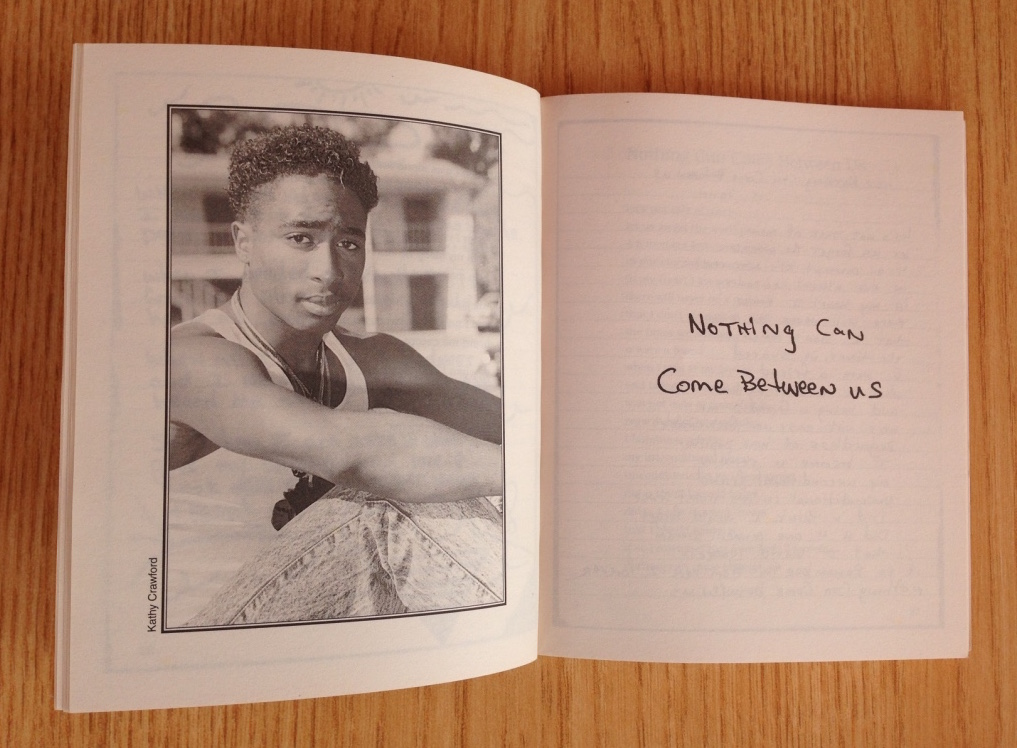 Kathy Crawford
Nothing Can
Come Between us